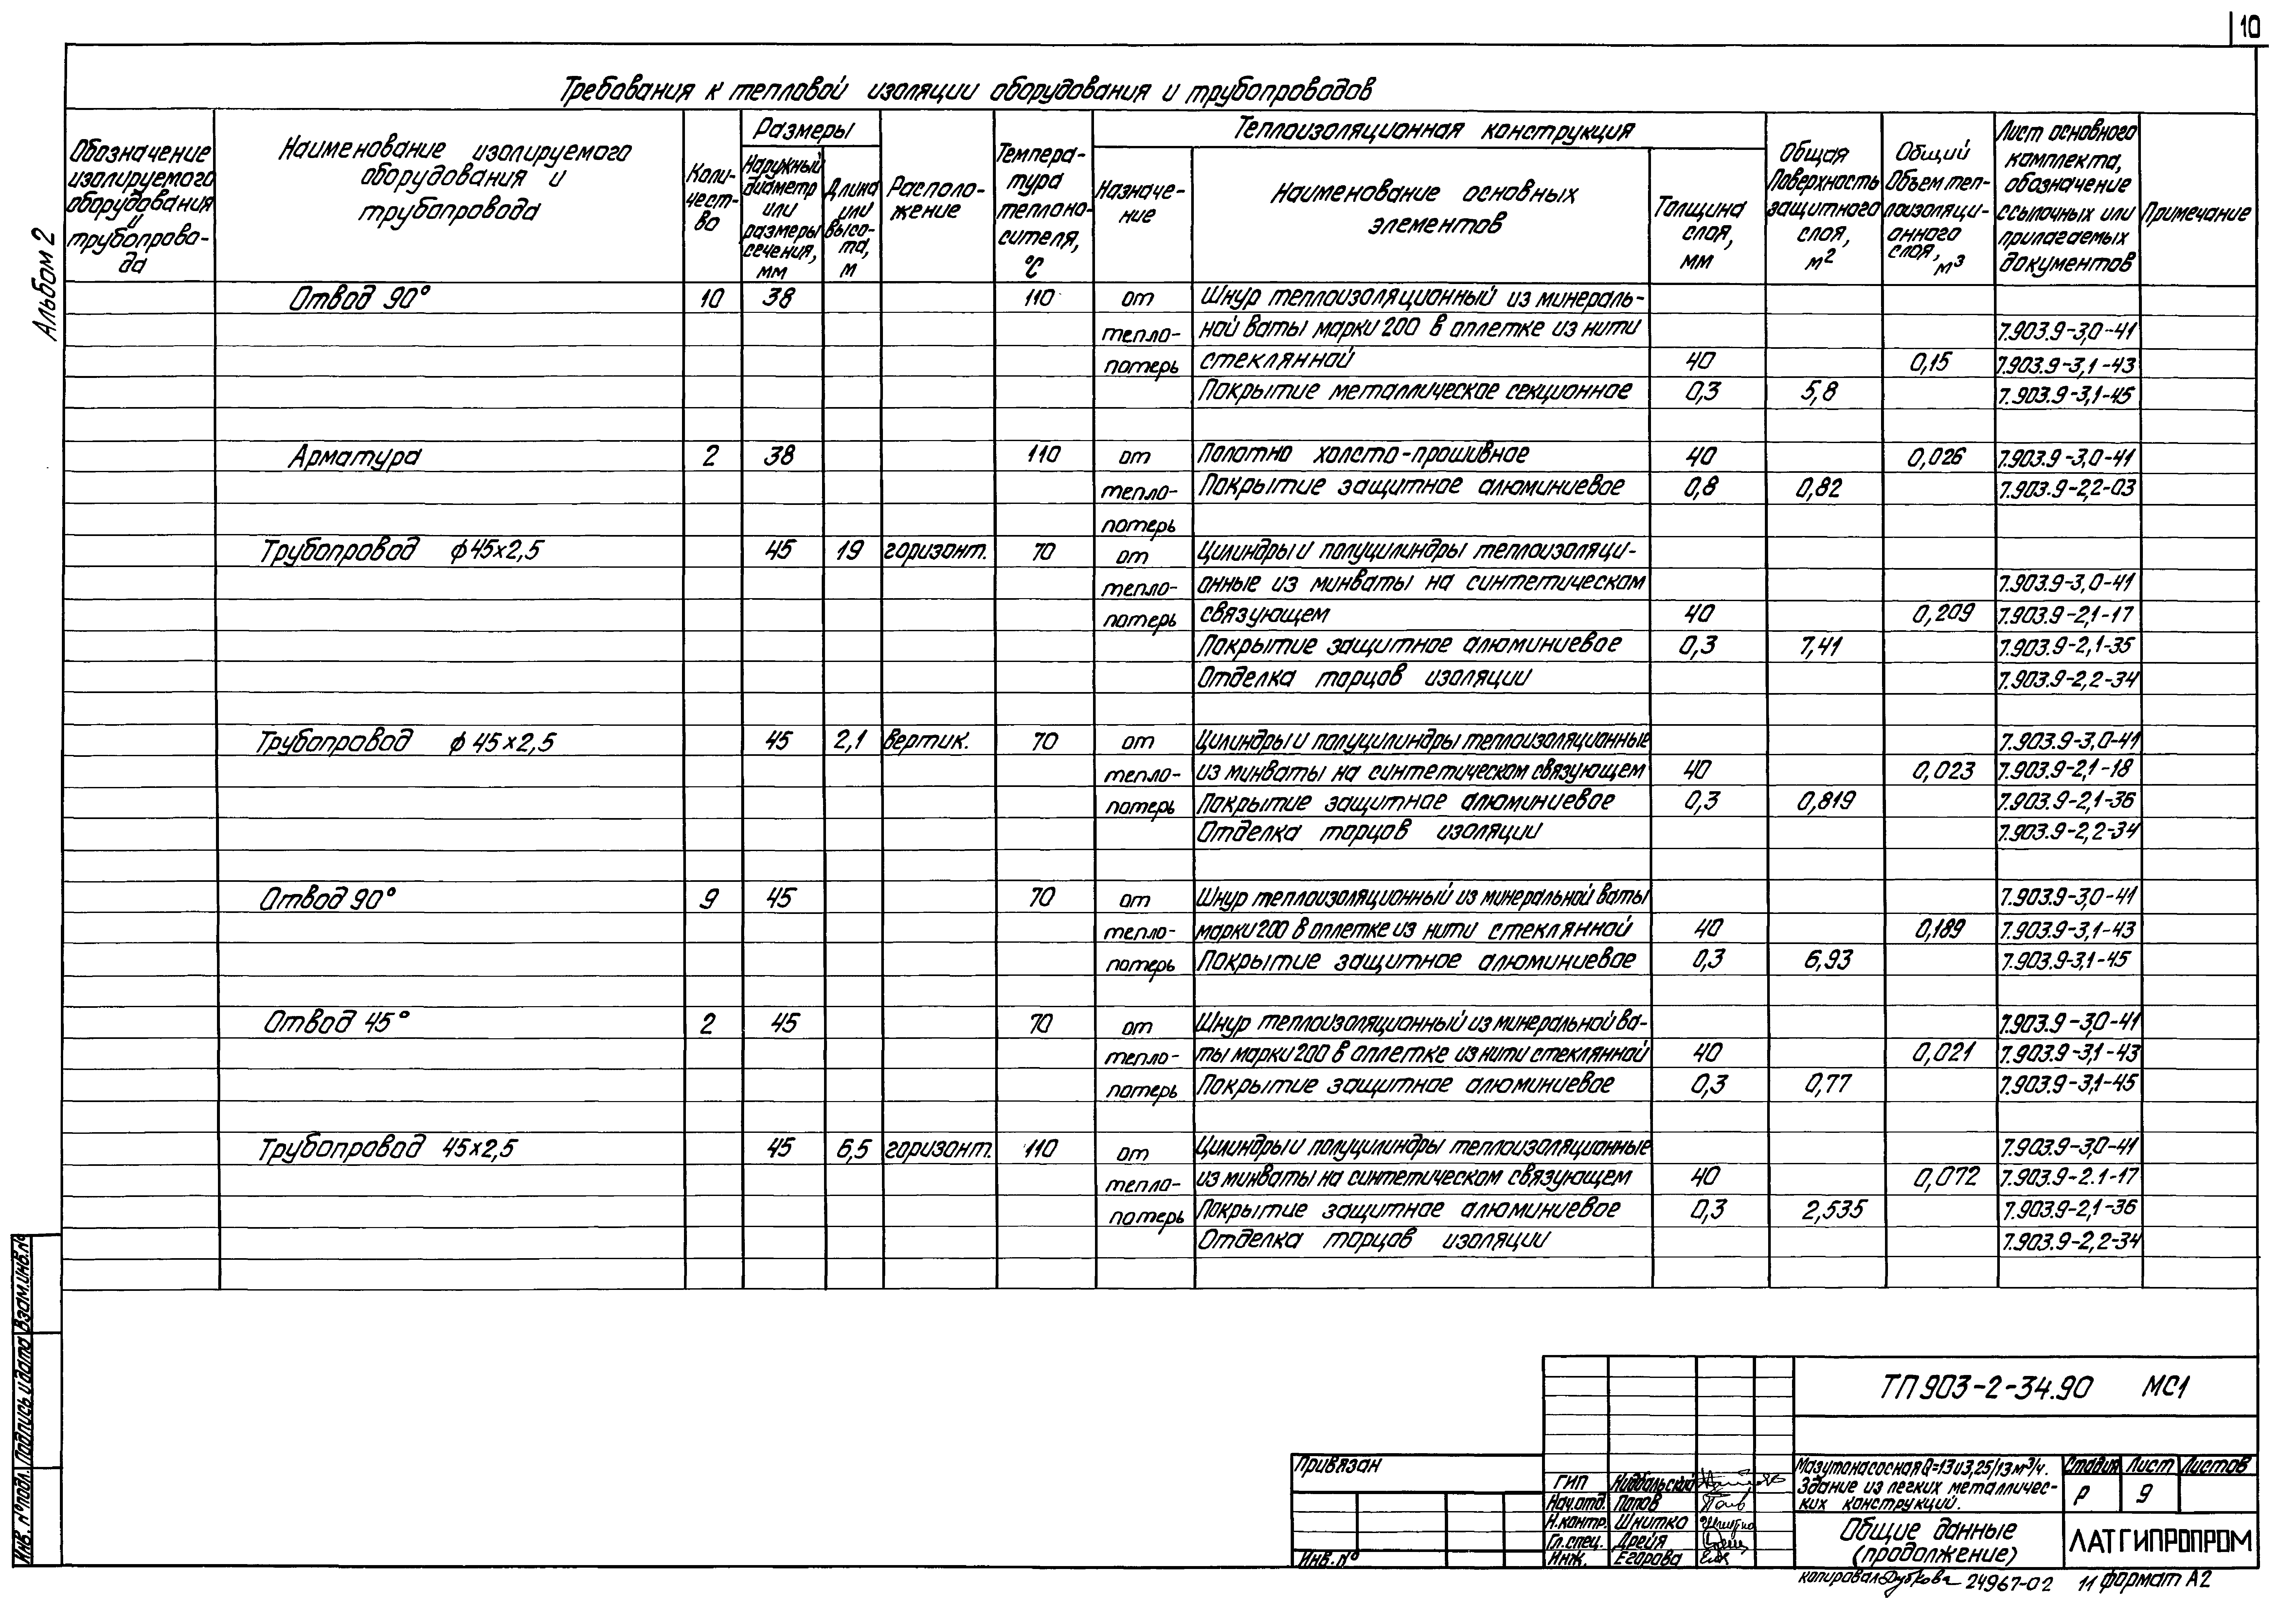 10
Альбом 2
Требования к тепловой изоляции оборудования и трубопроводов
Обозначение изолируемого оборудования и трубопрово-да
Наименование изолируемого оборудования и трубопровода
Коли-чест-во
Размеры
Наружный диаметр или размеры сечения, мм
Длина или высо-та, м
Располо-жение
Темпера-тура теплоно-сителя, °C
Теплоизоляционная конструкция
Назначе-ние
Наименование основных элементов
Толщина слоя, мм
Общая поверхность защитного слоя, м²
Общий объем теп-лоизоляци-онного слоя, м³
Лист основного комплекта, обозначение ссылочных или прилагаемых документов
Примечание
Отвод 90° 10 38 110 от Шнур теплоизоляционный из минераль-
тепло- ной ваты марки 200 в оплетке из нити 7.903.9-3,0-41
потерь стеклянной 40 0,15 7.903.9-3,1-43
Покрытие металлическое секционное 0,3 5,8 7.903.9-3,1-45
Арматура 2 38 110 от Полотно холсто-прошивное 40 0,026 7.903.9-3,0-41
тепло- Покрытие защитное алюминиевое 0,8 0,82 7.903.9-2,2-03
потерь
Трубопровод ф45×2,5 45 19 горизонт. 70 от Цилиндры и полуцилиндры теплоизоляци-
тепло- онные из минваты на синтетическом 7.903.9-3,0-41
потерь связующем 40 0,209 7.903.9-2,1-17
Покрытие защитное алюминиевое 0,3 7,41 7.903.9-2,1-35
Отделка торцов изоляции 7.903.9-2,2-34
Трубопровод ф45×2,5 45 2,1 вертик. 70 от Цилиндры и полуцилиндры теплоизоляционные 7.903.9-3,0-41
тепло- из минваты на синтетическом связующем 40 0,023 7.903.9-2,1-18
потерь Покрытие защитное алюминиевое 0,3 0,819 7.903.9-2,1-36
Отделка торцов изоляции 7.903.9-2,2-34
Отвод 90° 9 45 70 от Шнур теплоизоляционный из минеральной ваты 7.903.9-3,0-41
тепло- марки 200 в оплетке из нити стеклянной 40 0,189 7.903.9-3,1-43
потерь Покрытие защитное алюминиевое 0,3 6,93 7.903.9-3,1-45
Отвод 45° 2 45 70 от Шнур теплоизоляционный из минеральной ва- 7.903.9-3,0-41
тепло- ты марки 200 в оплетке из нити стеклянной 40 0,021 7.903.9-3,1-43
потерь Покрытие защитное алюминиевое 0,3 0,77 7.903.9-3,1-45
Трубопровод 45×2,5 45 6,5 горизонт. 110 от Цилиндры и полуцилиндры теплоизоляционные 7.903.9-3,0-41
тепло- из минваты на синтетическом связующем 40 0,072 7.903.9-2.1-17
потерь Покрытие защитное алюминиевое 0,3 2,535 7.903.9-2,1-36
Отделка торцов изоляции 7.903.9-2,2-34
Взам.инв.№
Подпись и дата
Инв. № подл.
ТП 903-2-34.90 МС1
Привязан
Инв. №
ГИП
Нач.отд. Попов
Н.контр. Шнитко
Гл.спец. Дрейя
Инж. Егорова
Мазутонасосная Q=13 и 3,25/13 м³/ч.
Здание из легких металличес-
ких конструкций.
Стадия Лист Листов
Р 9
Общие данные
(продолжение)
ЛАТГИПРОПРОМ
копировал Дубкова 24967-02 11 формат А2